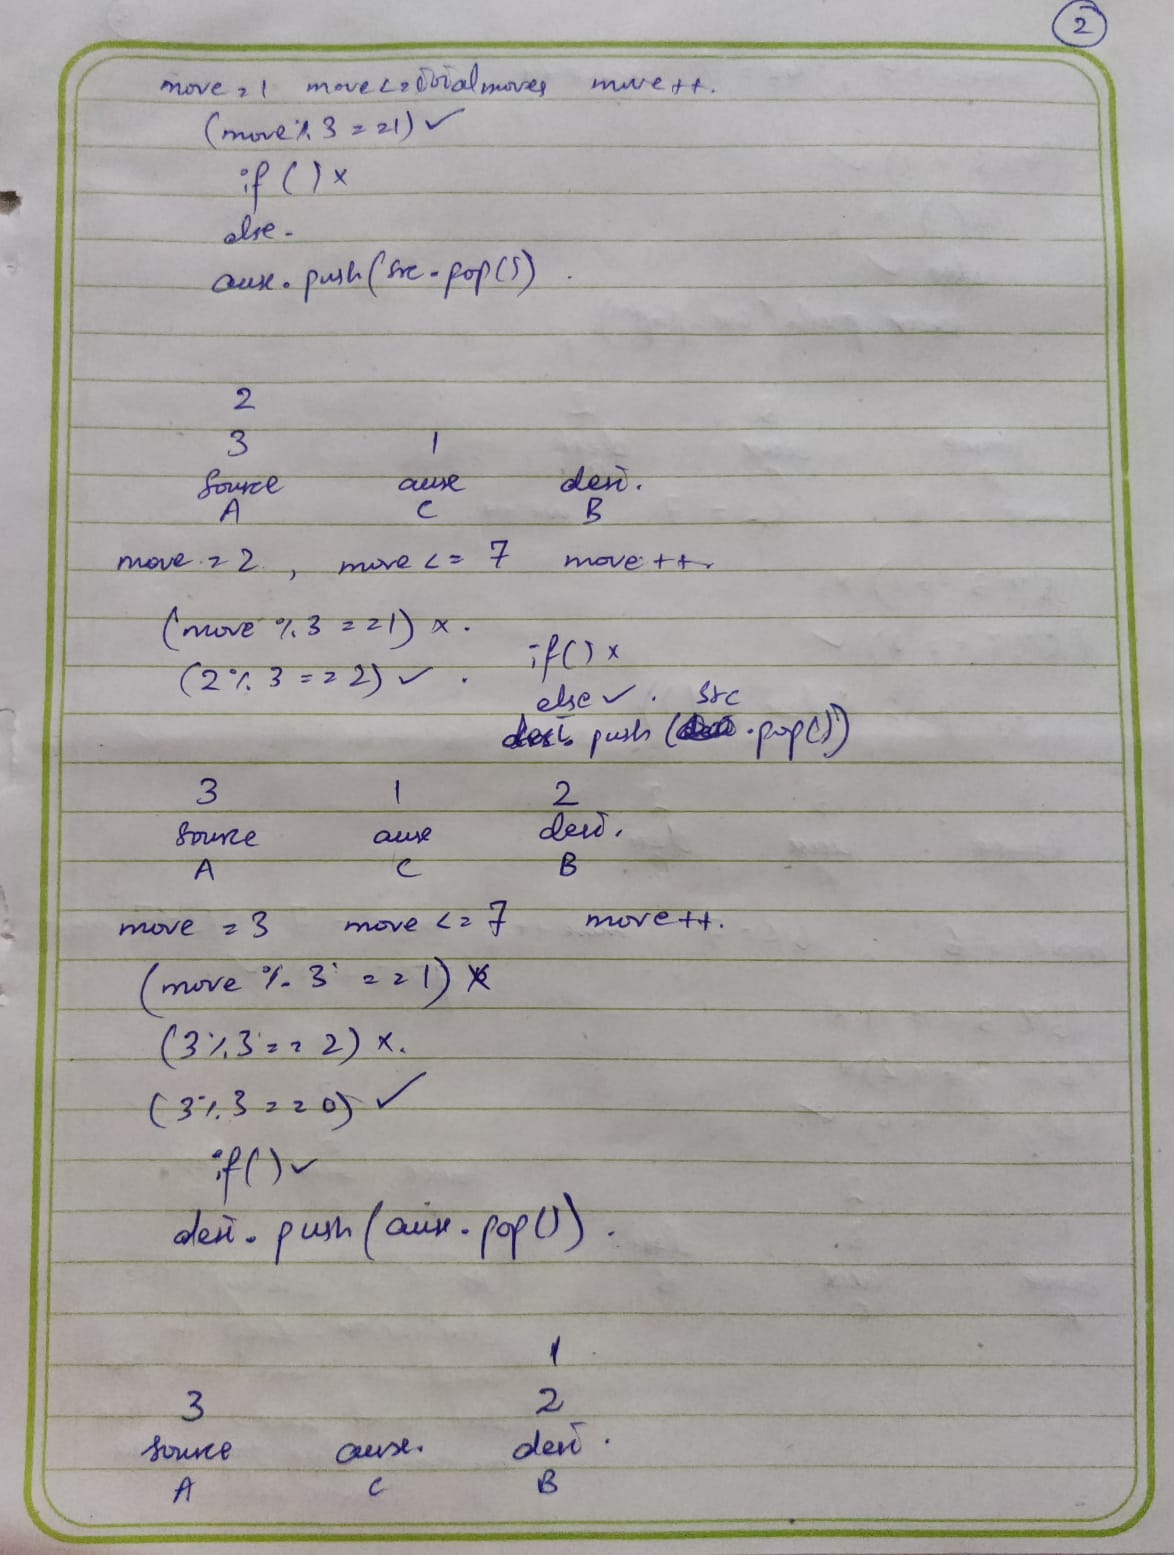 2
move = 1 move <= totalmoves move++.
(move % 3 == 1) ✓
if ( ) x
else -
aux. push (src. pop())
2
3 1
source aux dest.
A C B
move = 2, move <= 7 move++.
(move % 3 == 1) x.
if ( ) x
(2 % 3 == 2) ✓ .
else ✓ . src
dest. push ( . pop())
3 1 2
source aux dest.
A C B
move = 3 move <= 7 move++.
(move % 3 == 1) x
(3 % 3 == 2) x.
(3 % 3 == 0) ✓
if ( ) ✓
dest. push (aux. pop()) .
1
3 2
source aux. dest.
A C B